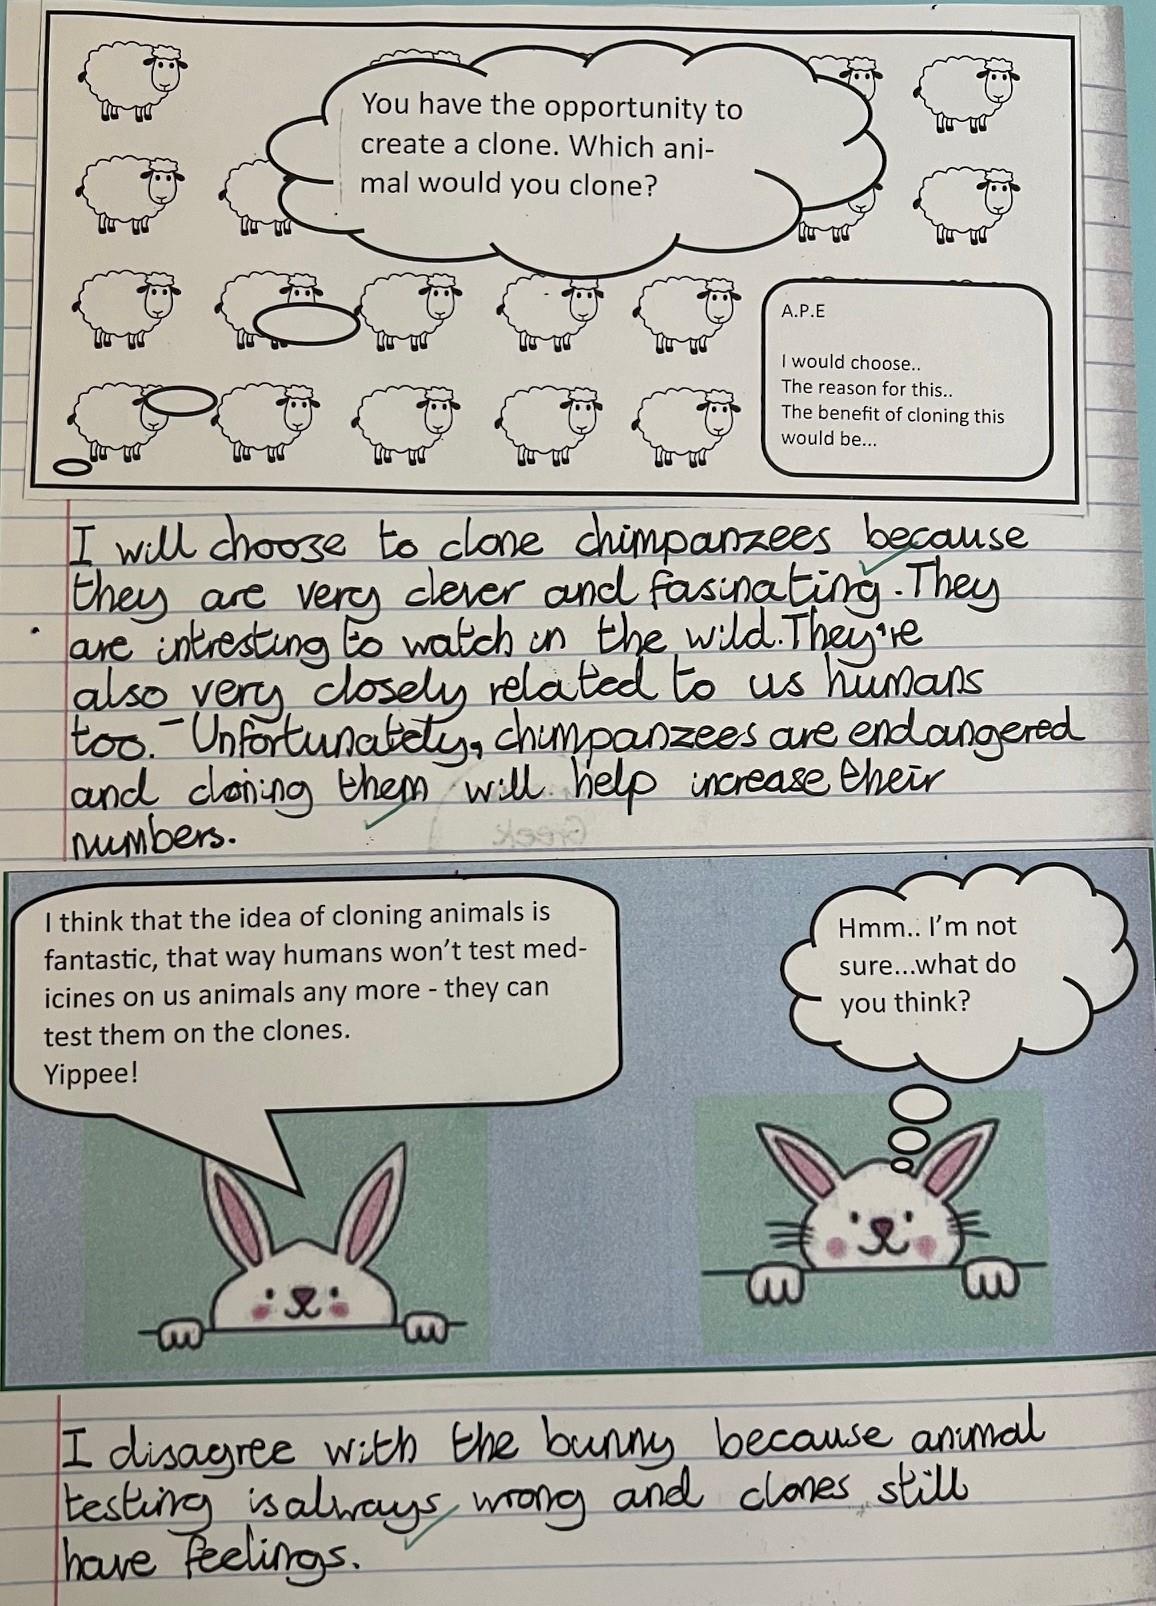 You have the opportunity to
create a clone. Which ani-
mal would you clone?
A.P.E
I would choose..
The reason for this..
The benefit of cloning this
would be...
I will choose to clone chimpanzees because
they are very clever and fasinating. They
are intresting to watch in the wild. They're
also very closely related to us humans
too. Unfortunately, chimpanzees are endangered
and cloning them will help increase their
numbers.
I think that the idea of cloning animals is
fantastic, that way humans won't test med-
icines on us animals any more - they can
test them on the clones.
Yippee!
Hmm.. I'm not
sure...what do
you think?
I disagree with the bunny because animal
testing is always wrong and clones still
have feelings.